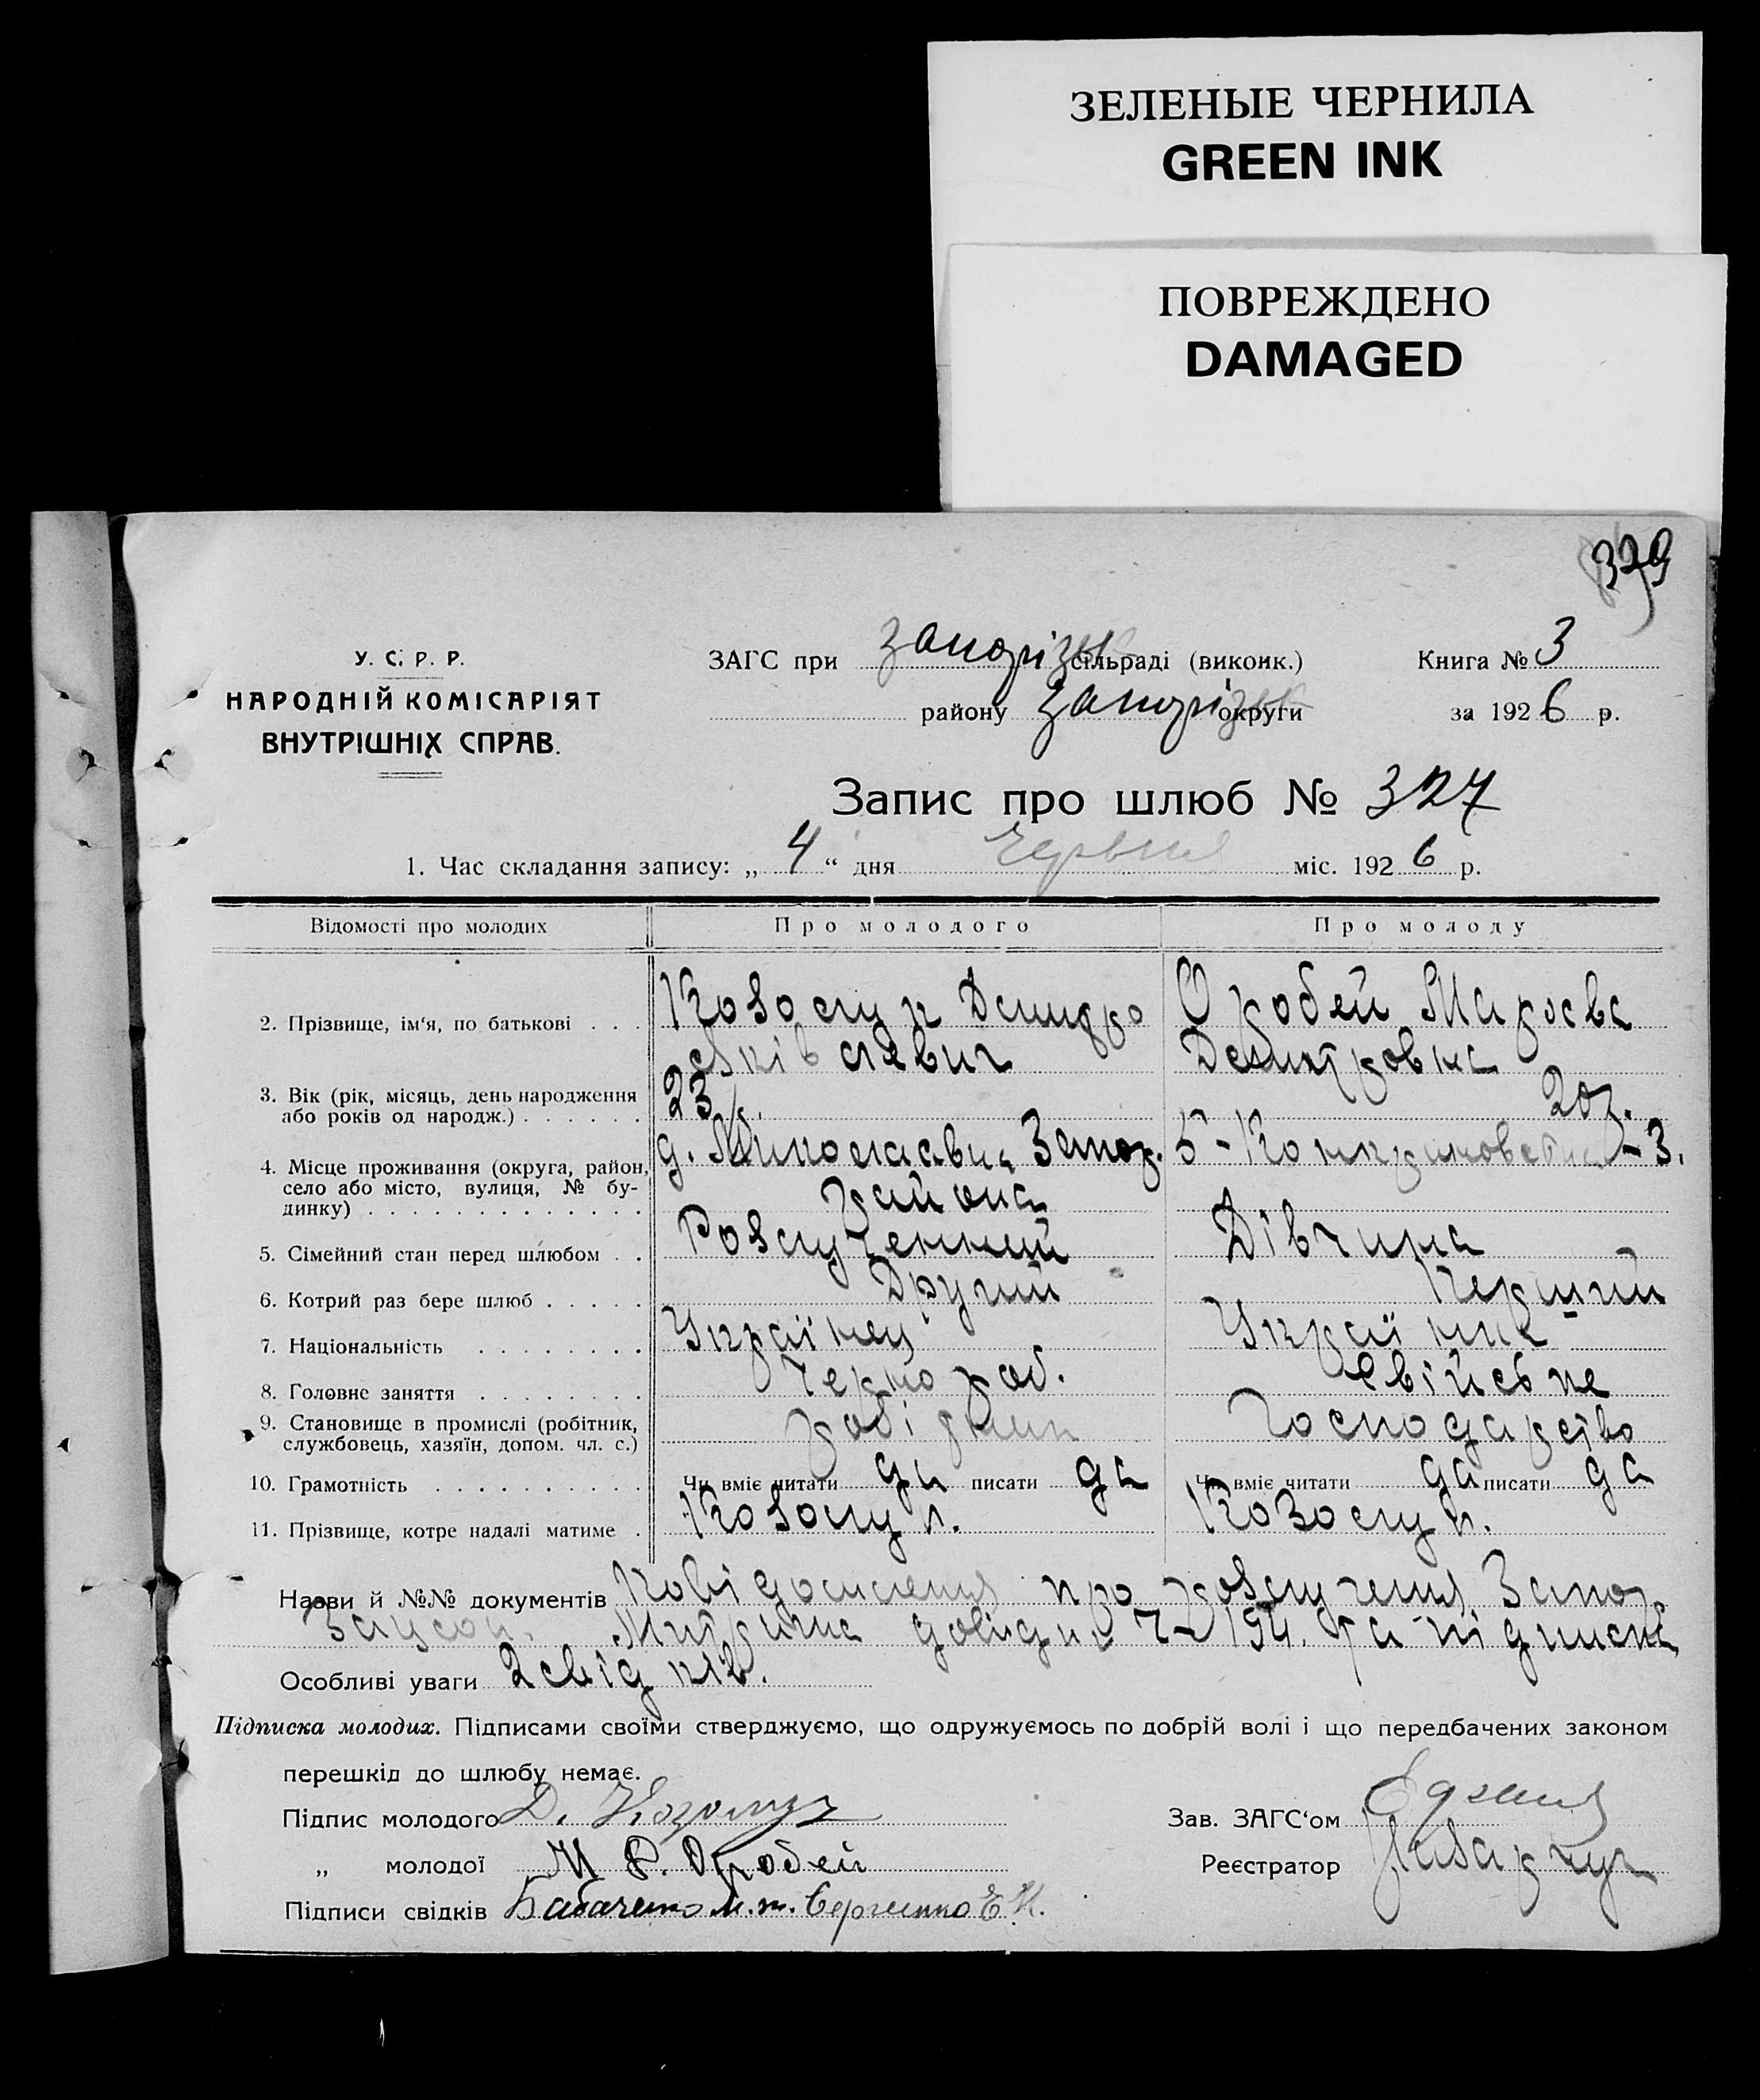 ЗЕЛЕНЫЕ ЧЕРНИЛА
GREEN INK
ПОВРЕЖДЕНО
DAMAGED
329
У. С. Р. Р.
НАРОДНІЙ КОМІСАРІЯТ
ВНУТРІШНІХ СПРАВ.
ЗАГС при Запорізьк сільраді (виконк.) Книга № 3
району Запорізьк округи за 1926 р.
Запис про шлюб № 327
1. Час складання запису: „ 4 “ дня Червня міс. 1926 р.
Відомості про молодих Про молодого Про молоду
2. Прізвище, ім'я, по батькові . . . Козолуп Дмитро Оробей Марфа
Яківлевич Дмитровна
3. Вік (рік, місяць, день народження 23 20 р.
або років од народж.) . . . . . .
4. Місце проживання (округа, район, д. Миколаавка Запор. З.
село або місто, вулиця, № бу- района
динку) . . . . . . . . . . . . .
5. Сімейний стан перед шлюбом . . Розлученний Дівчина
6. Котрий раз бере шлюб . . . . . Другий Перший
7. Національність . . . . . . . . Українец Українка
8. Головне заняття . . . . . . . . Чернороб. Свійське
9. Становище в промислі (робітник, робітник Господарство
службовець, хазяїн, допом. чл. с.)
10. Грамотність . . . . . . . . . . Чи вміє читати да писати да Чи вміє читати да писати да
11. Прізвище, котре надалі матиме . Козолуп. Козолуп.
Назви й №№ документів Повідомлення про розлучення Запор.
Загсом. Метрична довідка 194. та підписка
Особливі уваги 2 свідків.
Підписка молодих. Підписами своїми стверджуємо, що одружуємось по добрій волі і що передбачених законом
перешкід до шлюбу немає.
Підпис молодого Д. Козолуп Зав. ЗАГС'ом
„ молодої М Д. Оробей Реєстратор
Підписи свідків Бабаченко М. т. Сергиенко Е. К.